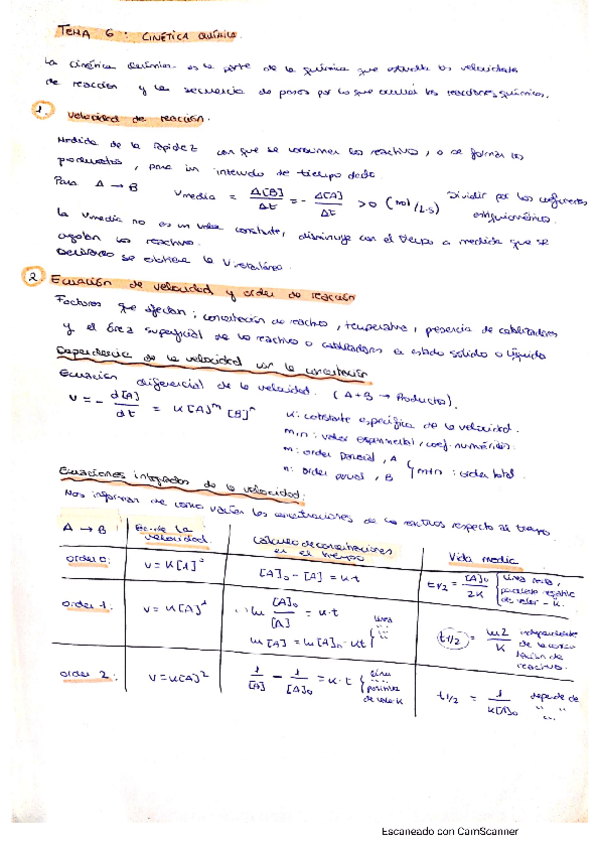 TEMA 6: CINÉTICA QUÍMICA.
La cinética Química es la parte de la química que estudia las velocidades
de reacción y la secuencia de pasos por lo que ocurren las reacciones químicas.
1. Velocidad de reacción.
Medida de la rapidez con que se consumen los reactivos, o se forman los
productos, para un intervalo de tiempo dado.
Para A → B Vmedia = Δ[B]/Δt = - Δ[A]/Δt > 0 (mol/L·s) Dividir por los coeficientes estequiométricos.
La Vmedia no es un valor constante, disminuye con el tiempo a medida que se
agotan los reactivos.
se obtiene la V instantánea.
2 Ecuación de velocidad y orden de reacción
Factores que afectan: concentración de reactivo, temperatura, presencia de catalizadores
y el área superficial de los reactivos o catalizadores en estado sólido o líquido
Dependencia de la velocidad con la concentración
Ecuación diferencial de la velocidad. (A+B → Productos).
v = - d[A]/dt = K[A]^m [B]^n
K: constante específica de la velocidad.
m,n: valor experimental, coef. numéricos.
m: orden parcial, A
n: orden parcial, B } m+n: orden total.
Ecuaciones integradas de la velocidad:
Nos informan de como varían las concentraciones de los reactivos respecto al tiempo.
A → B Ec. de la velocidad. Cálculo de concentraciones en el tiempo Vida media
orden 0: v = K[1]° [A]₀ - [A] = K·t t1/2 = [A]₀/2K línea recta, pendiente negativa de valor - K.
orden 1: v = K[A]¹ ln [A]₀/[A] = K·t
ln[A] = ln[A]₀ - Kt { línea " " t1/2 = ln2/K independiente de la concentración de reactivo.
orden 2: v = K[A]² 1/[A] - 1/[A]₀ = K·t { positiva de valor K t1/2 = 1/K[A]₀ depende de " "
Escaneado con CamScanner